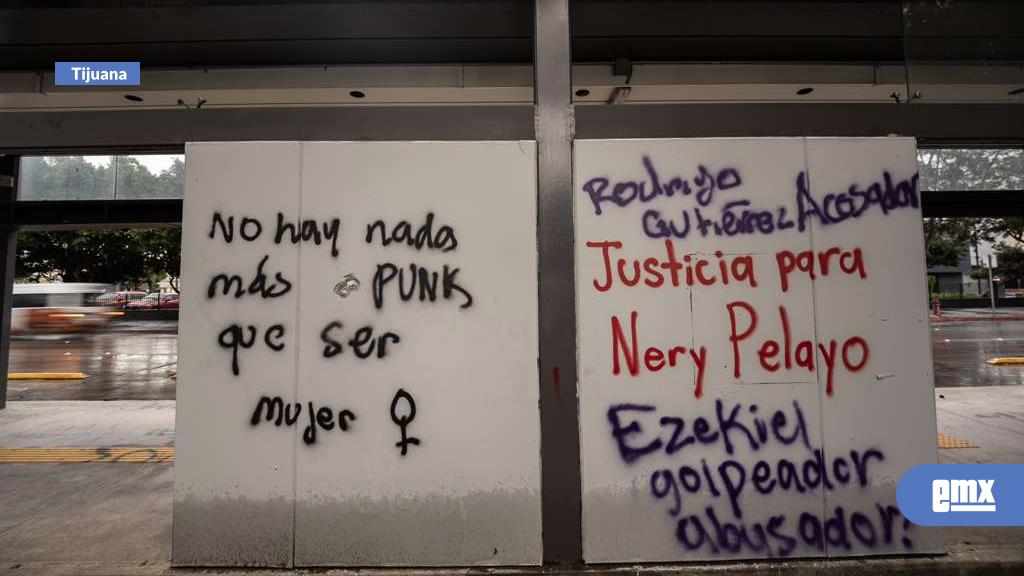 Tijuana
No hay nada
más PUNK
que ser
mujer ♀
Rodrigo
Gutiérrez Acosador
Justicia para
Nery Pelayo
Ezekiel
golpeador
abusador!
emx